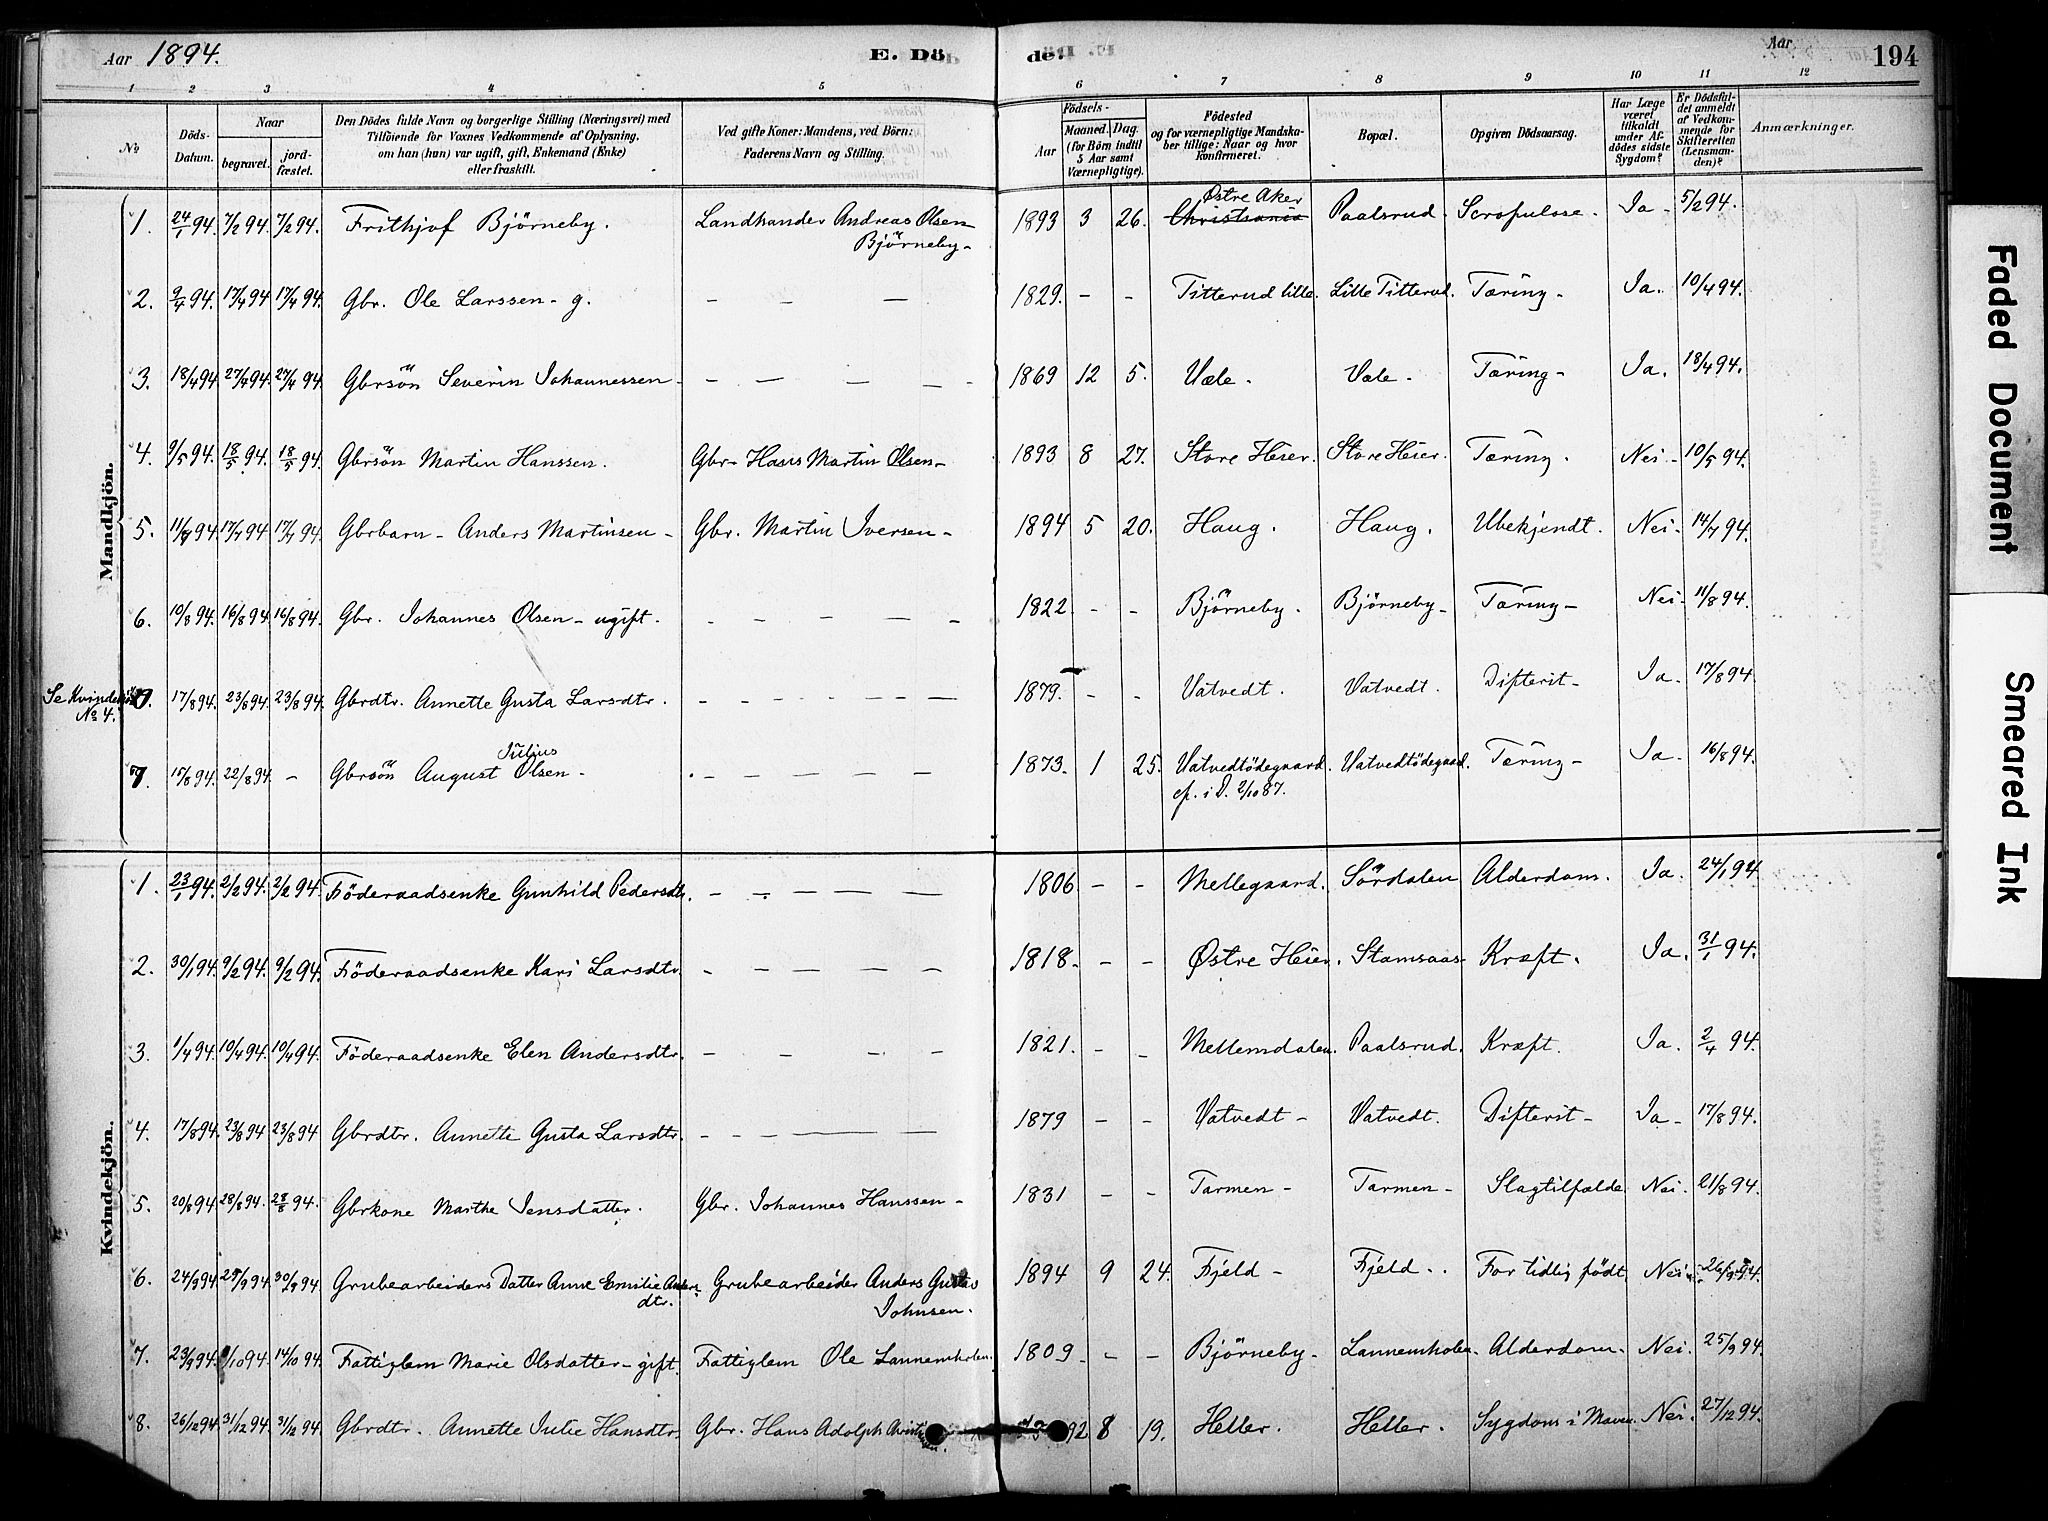 Aar 1894.
E. Dö
de.
Aar
194
1 2 3 4 5 6 7 8 9 10 11 12
No
Döds-Datum.
Naar
begravet.
jord-fæstet.
Den Dödes fulde Navn og borgerlige Stilling (Næringsvei) med
Tilföiende for Voxnes Vedkommende af Oplysning,
om han (hun) var ugift, gift, Enkemand (Enke)
eller fraskilt.
Ved gifte Koner: Mandens, ved Börn:
Faderens Navn og Stilling.
Födsels-
Aar
Maaned. Dag.
(for Börn indtil
5 Aar samt
Værnepligtige).
Födested
og for værnepligtige Mandska-
ber tillige: Naar og hvor
konfirmeret.
Bopæl.
Opgiven Dödsaarsag.
Har Læge
været
tilkaldt
under Af-
dödes sidste
Sygdom?
Er Dödsfal-
det anmeldt
af Vedkom-
mende for
Skifteretten
(Lensman-
den)?
Anmærkninger.
Mandkjön.
Østre Aker
1. 24/1 94. 7/2 94. 7/2 94. Frithjof Björneby. Landhander Andreas Olsen 1893 3 26. Christiania Paalsrud. Scropulose. Ja - 5/2 94.
Björneby -
2. 9/4 94. 17/4 94 17/4 94. Gbr. Ole Larssen - g. — — — 1829. - - Titterud lille. Lille Titterud. Tæring - Ja. 10/4 94.
3. 18/4 94. 27/4 94. 27/4 94. Gbrsön Severin Johannessen - — — — — 1869 12 5. Væle. Væle - Tæring - Ja. 18/4 94.
4. 9/5 94. 18/5 94. 18/5 94. Gbrsön Martin Hanssen. Gbr - Hans Martin Olsen - 1893 8 27. Store Heier. Store Heier. Tæring. Nei - 10/5 94.
5. 11/7 94 17/7 94 17/7 94. Gbrbarn - Anders Martinsen - Gbr. Martin Iversen - 1894 5 20. Haug. Haug. Ubekjendt. Nei - 14/7 94.
6. 10/8 94. 16/8 94 16/8 94. Gbr. Johannes Olsen - ugift. — — — — 1822 - - Björneby. Björneby - Tæring - Nei - 11/8 94.
Se Kvindekjön
No 4.
17/8 94. 23/8 94. 23/8 94. Gbrdtr. Annette Gusta Larsdtr. - - - - - - 1879. - - Vatvedt. Vatvedt. Difterit - Ja - 17/8 94.
Julius
7 15/8 94. 22/8 94. - Gbrsön August Olsen - — — — — 1873. 1 25. Vatvedtödegaard. Vatvedtödegaard. Tæring - Ja - 16/8 94.
cf. i D. 2/10 87.
Kvindekjön.
1. 23/1 94. 2/2 94. 2/2 94. Föderaadsenke Gunhild Pedersdtr. — — — — 1806 - - Mellegaard. Sördalen Alderdom. Ja. 24/1 94.
2. 30/1 94. 9/2 94. 9/2 94. Föderaadsenke Kari Larsdtr. - - - - - 1818 - - - Østre Heier. Stamsaas - Kræft. Ja. 31/1 94.
3. 1/4 94. 10/4 94. 10/4 94. Föderaadsenke Elen Andersdtr. - - - - 1821. - - Mellemdalen. Paalsrud. Kræft. Ja. 2/4 94.
4. 17/8 94. 23/8 94 23/8 94 Gbrdtr. Annette Gusta Larsdtr. - - - — — — 1879 - - Vatvedt - Vatvedt. Difterit - Ja - 17/8 94.
5. 20/8 94 28/8 94. 28/8 94. Gbrkone Marthe Jensdatter. Gbr. Johannes Hanssen - 1831 - - Tarmen - Tarmen - Slagtilfælde Nei. 21/8 94.
6. 24/9 94 29/9 94 30/9 94 Grubearbeiders Datter Anne Emilie Anders- Grubearbeider Anders Gustav 1894 9 24. Fjeld - Fjeld. For tidlig födt Nei 26/9 94.
dtr. Johnsen.
7. 23/9 94. /10 94. 14/10 94. Fattiglem Marie Olsdatter - gift. Fattiglem Ole Lannemholen. 1809 - - Björneby - Lannemholen. Alderdom. Nei. 25/9 94.
8. 26/12 94. 31/12 94. 31/12 94. Gbrdtr. Annette Julie Hansdtr. Gbr. Hans Adolph 92 8 19. Heller. Heller. Sygdom i Maven. Nei. 27/12 94.
Faded Document
Smeared Ink